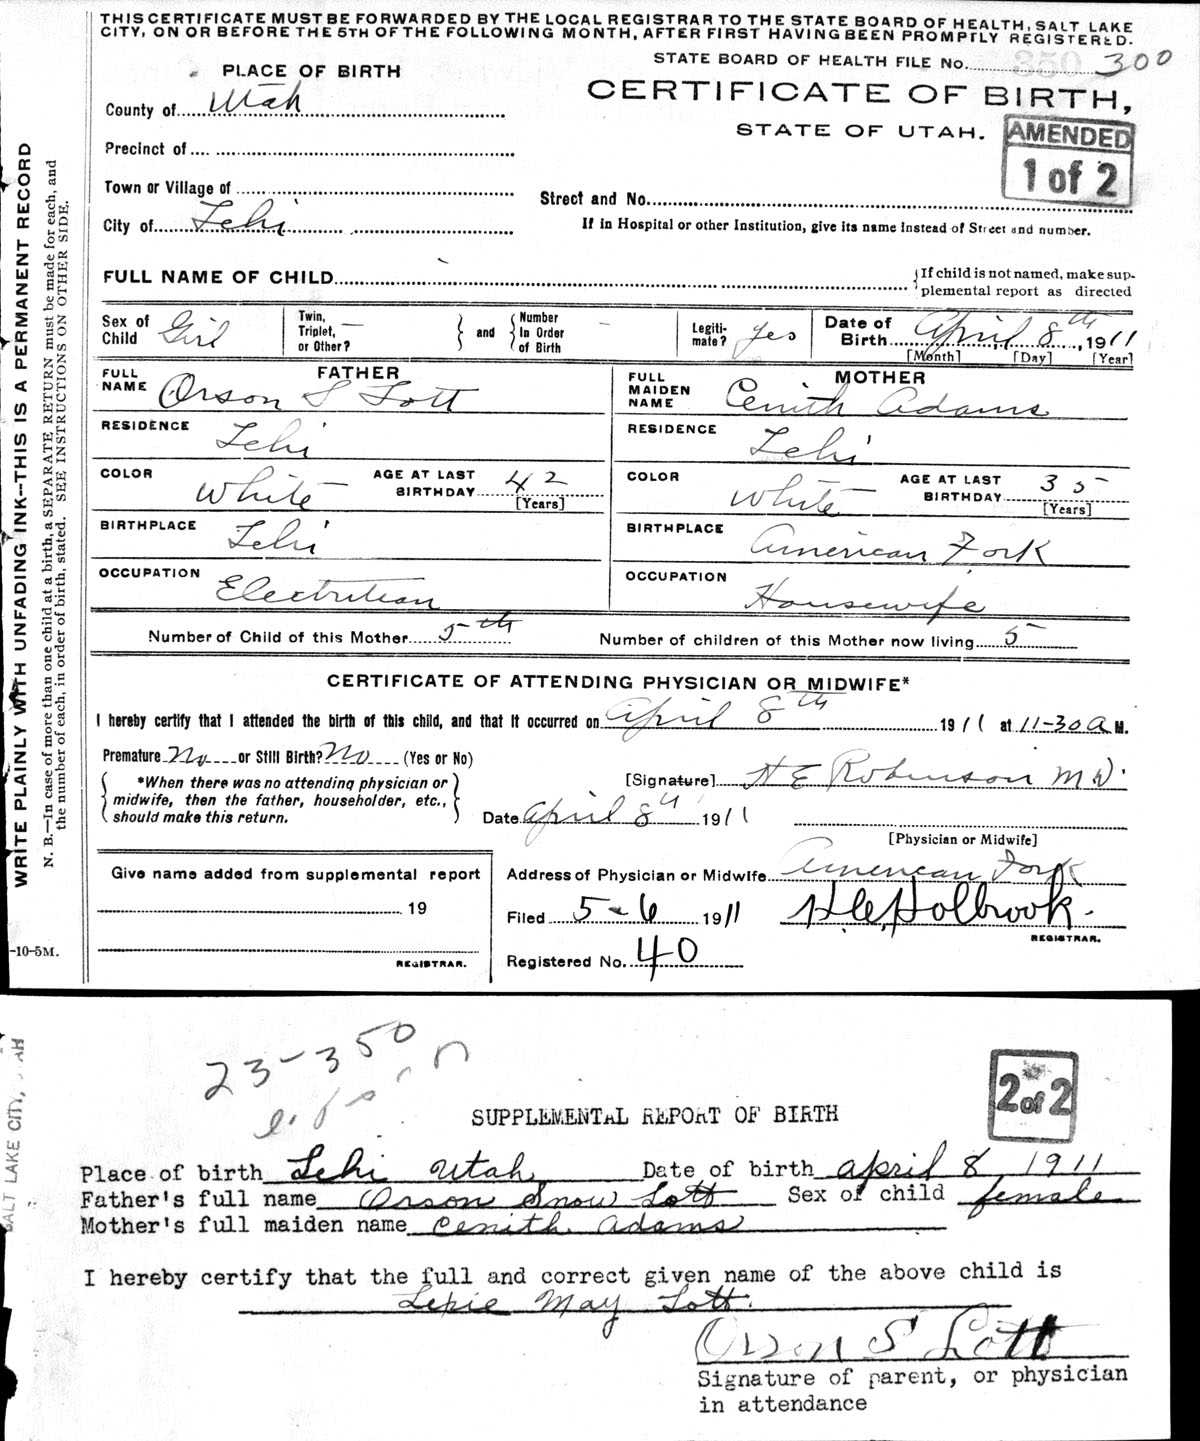 THIS CERTIFICATE MUST BE FORWARDED BY THE LOCAL REGISTRAR TO THE STATE BOARD OF HEALTH, SALT LAKE
CITY, ON OR BEFORE THE 5TH OF THE FOLLOWING MONTH, AFTER FIRST HAVING BEEN PROMPTLY REGISTERED.
STATE BOARD OF HEALTH FILE No. 350 300
PLACE OF BIRTH
CERTIFICATE OF BIRTH,
County of Utah
STATE OF UTAH.
AMENDED
1 of 2
Precinct of
Town or Village of
Street and No.
City of Lehi
If in Hospital or other Institution, give its name instead of Street and number.
FULL NAME OF CHILD
{If child is not named, make sup-
plemental report as directed
Sex of Child Girl
Twin, Triplet, or Other? —
and
Number In Order of Birth –
Legiti-mate? yes
Date of Birth April 8th, 1911
[Month] [Day] [Year]
FATHER
FULL NAME Orson S Lott
MOTHER
FULL MAIDEN NAME Cenith Adams
RESIDENCE Lehi
RESIDENCE Lehi
COLOR White AGE AT LAST BIRTHDAY 42 [Years]
COLOR White AGE AT LAST BIRTHDAY 35 [Years]
BIRTHPLACE Lehi
BIRTHPLACE American Fork
OCCUPATION Electritian
OCCUPATION Housewife
Number of Child of this Mother 5th Number of children of this Mother now living 5
CERTIFICATE OF ATTENDING PHYSICIAN OR MIDWIFE*
I hereby certify that I attended the birth of this child, and that it occurred on April 8th 1911 at 11-30 A M.
Premature No or Still Birth? No (Yes or No)
*When there was no attending physician or
midwife, then the father, householder, etc.,
should make this return.
[Signature] H E Robinson M D.
Date April 8th 1911
[Physician or Midwife]
Give name added from supplemental report
19
REGISTRAR.
Address of Physician or Midwife American Fork
Filed 5-6 1911 H. C. Holbrook.
REGISTRAR.
Registered No. 40
WRITE PLAINLY WITH UNFADING INK—THIS IS A PERMANENT RECORD
N. B.—In case of more than one child at a birth, a SEPARATE RETURN must be made for each, and
the number of each, in order of birth, stated. SEE INSTRUCTIONS ON OTHER SIDE.
-10-5M.
SALT LAKE CITY, UTAH
23-350
2 of 2
SUPPLEMENTAL REPORT OF BIRTH
Place of birth Lehi Utah Date of birth april 8 1911
Father's full name Orson Snow Lott Sex of child female
Mother's full maiden name Cenith adams
I hereby certify that the full and correct given name of the above child is
May Lott.
Orson S Lott
Signature of parent, or physician
in attendance